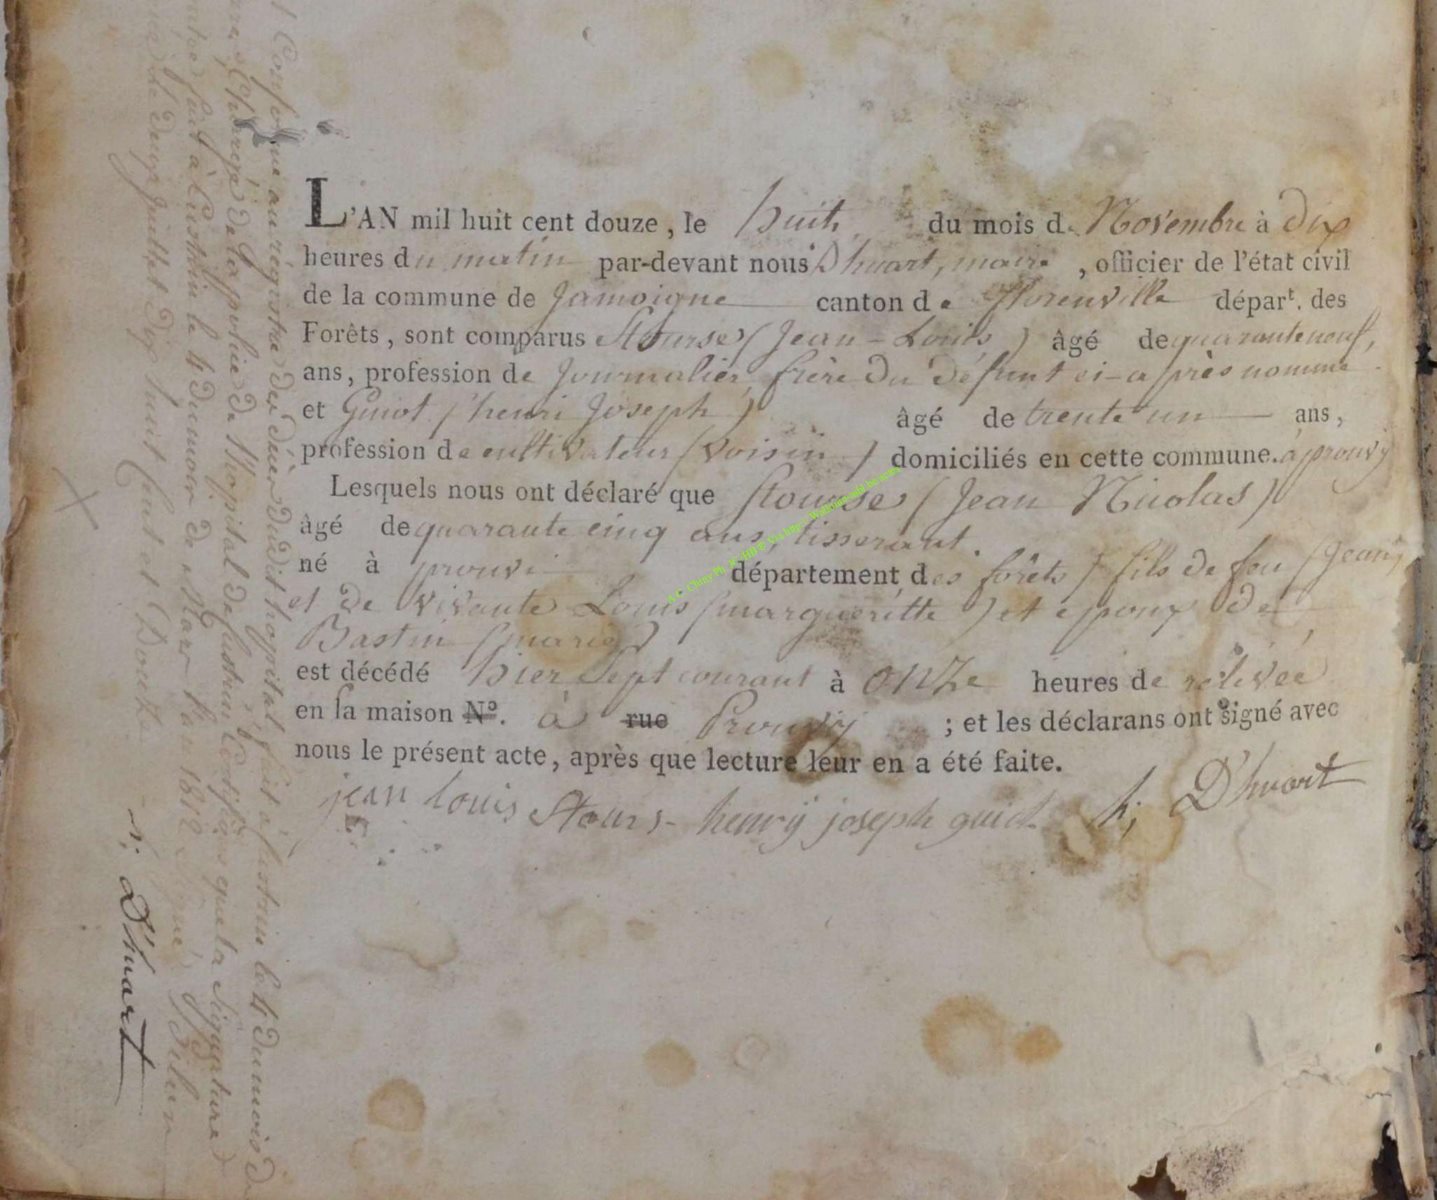 L'AN mil huit cent douze, le huit du mois de Novembre à dix
heures du matin par-devant nous Dhuart, maire, officier de l'état civil
de la commune de Jamoigne canton de florenvilleépart. des
Forêts, sont comparus Stourse (Jean-Louis) âgé de quaranteneuf,
ans, profession de Journalier, frère du défunt ci-après nommé
et Guiot (henri Joseph) âgé de trente un ans,
profession de cultivateur (voisin) domiciliés en cette commune. à prouvy
Lesquels nous ont déclaré que Stourse (Jean Nicolas)
âgé de quarante cinq ans, tisserant.
né à prouvi département des forêts) fils de feu (Jean)
et de vivante Louis (margueritte) et epoux de
Bastin (marie)
est décédé hier sept courant à onze heures de rélévée
en sa maison N°. à rue Prouvy ; et les déclarans ont signé avec
nous le présent acte, après que lecture leur en a été faite.
jean louis Stours henrÿ joseph guiot h; D'huart
Conforme au régistre des décès dudit hopital, fait à le 4 du mois de
de la copie de l'hopital de que la signature
fait à le 4 du mois de Mars l'an 1812 signé
le douze Juillet dix huit cent et Douze
D'huart